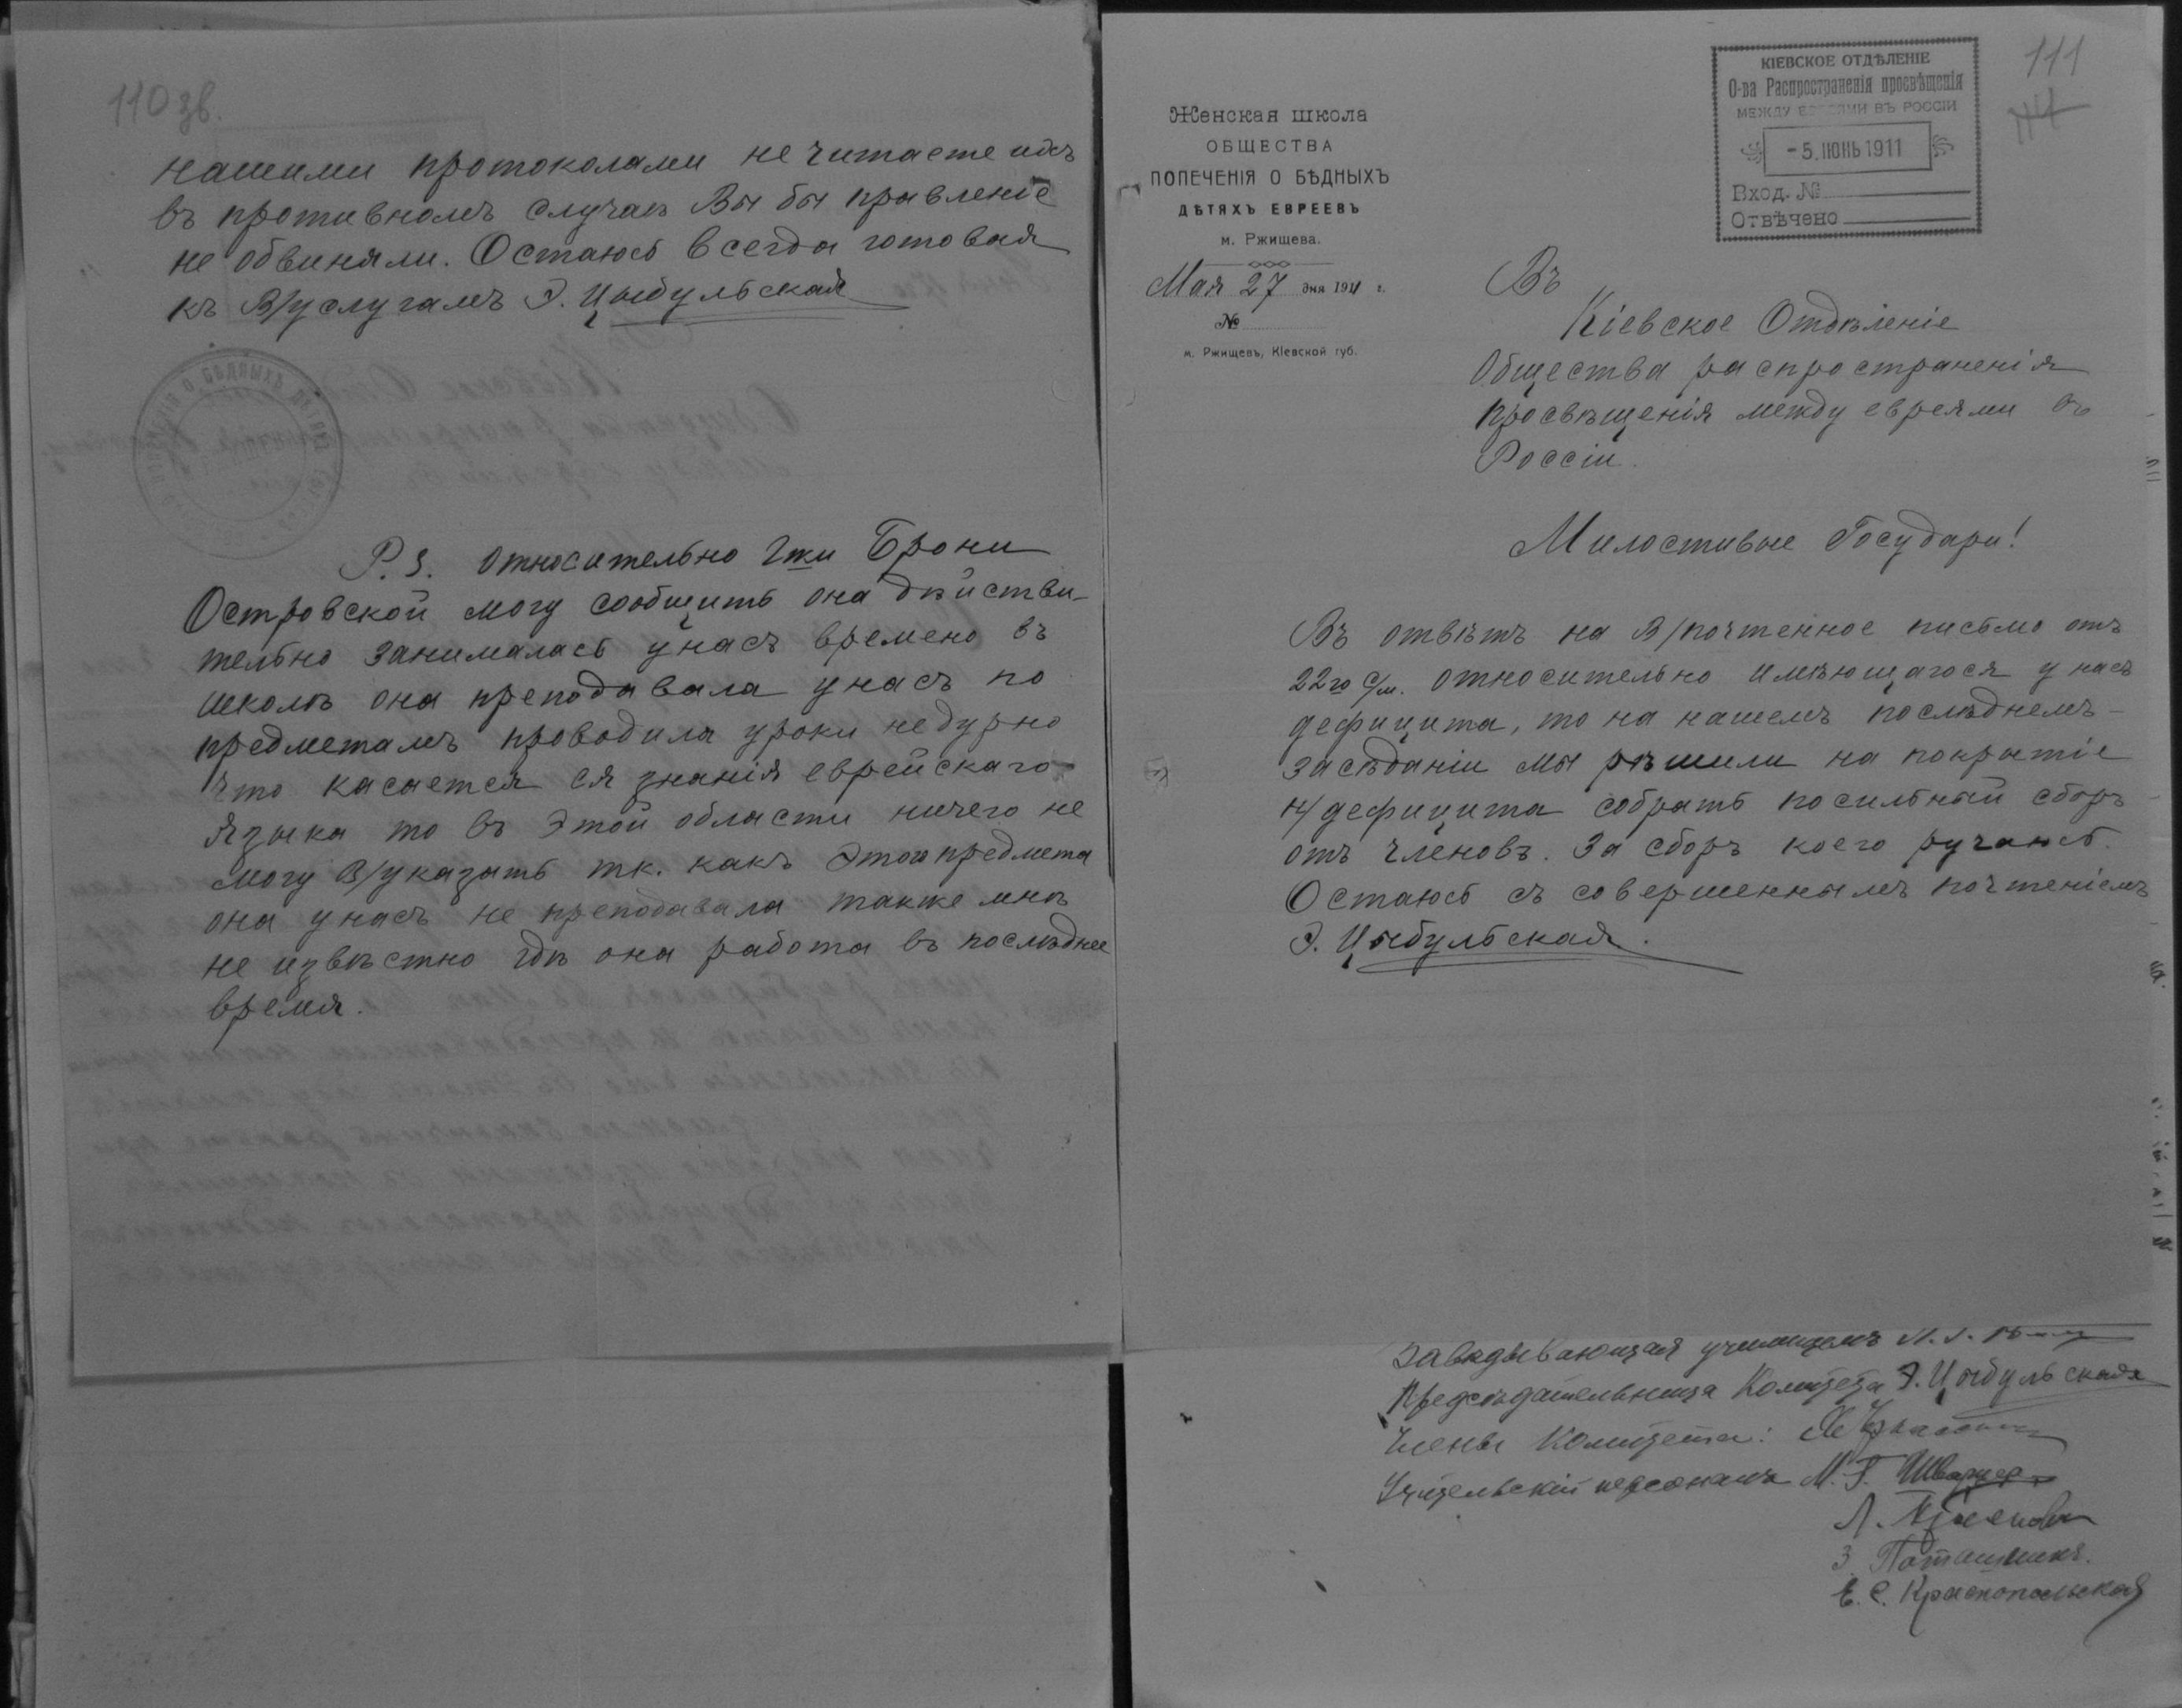 110 зв.
нашими протоколами не читаете ихъ
въ противномъ случаѣ Вы бы правленіе
не обвиняли. Остаюсь всегда готовая
къ В/услугамъ Э. Цыбульская
P.S. относительно Гжи Брони
Островской могу сообщить она дѣйстви-
тельно занималась у насъ времено въ
школѣ она преподавала у насъ по
предметамъ проводила уроки недурно
что касается ея знанія еврейскаго
языка то въ этой области ничего не
могу В/указать тк. какъ этого предмета
она у насъ не преподавала также мнѣ
не извѣстно гдѣ она работа въ послѣднее
время.
111
КІЕВСКОЕ ОТДѢЛЕНІЕ
О-ва Распространенія просвѣщенія
МЕЖДУ ЕВРЕЯМИ ВЪ РОССІИ
-5. ІЮНЬ 1911
Вход. №
Отвѣчено
Женская школа
ОБЩЕСТВА
ПОПЕЧЕНІЯ О БѢДНЫХЪ
ДѢТЯХЪ ЕВРЕЕВЪ
м. Ржищева.
Мая 27 дня 1911 г.
№
м. Ржищевъ, Кіевской губ.
Въ
Кіевское Отдѣленіе
Общества распространенія
просвѣщенія между евреями въ
Россіи.
Милостивые Государи!
Въ отвѣтъ на В/почтенное письмо отъ
22го с/м. относительно имѣющагося у насъ
дефицита, то на нашемъ послѣднемъ
засѣданіи мы рѣшили на покрытіе
н/дефицита собрать посильный сборъ
отъ членовъ. За сборъ коего ручаюсь.
Остаюсь съ совершеннымъ почтеніемъ
Э. Цыбульская.
Завѣдывающая училищемъ
Предсѣдательница Комитета Э. Цыбульская
Члены Комитета:
Учительскій персоналъ М. Г. Шварцеръ
Л.
З. Поташникъ.
Е. С. Краснопольская